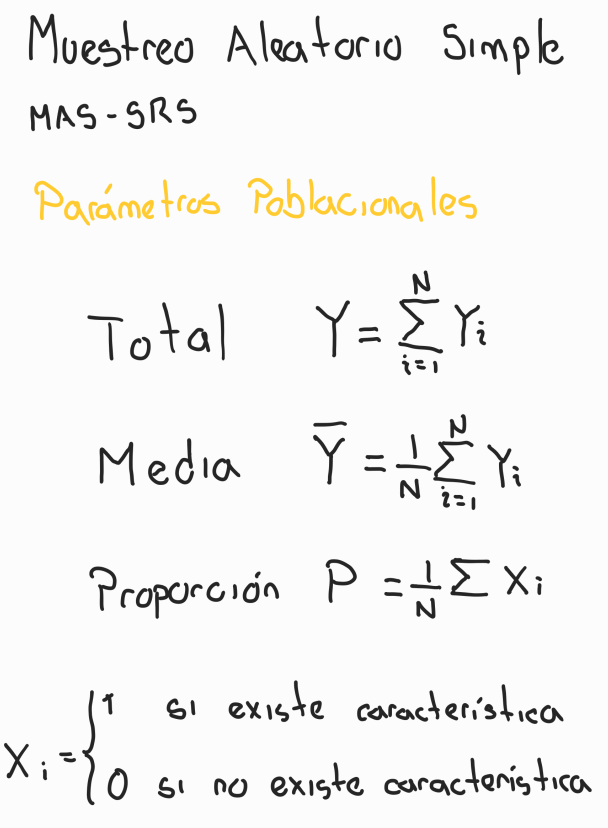 Muestreo Aleatorio Simple
MAS-SRS
Parámetros Poblacionales
Total Y = \sum_{i=1}^{N} Y_i
Media \overline{Y} = \frac{1}{N} \sum_{i=1}^{N} Y_i
Proporción P = \frac{1}{N} \sum X_i
X_i = { 1 si existe característica
0 si no existe característica